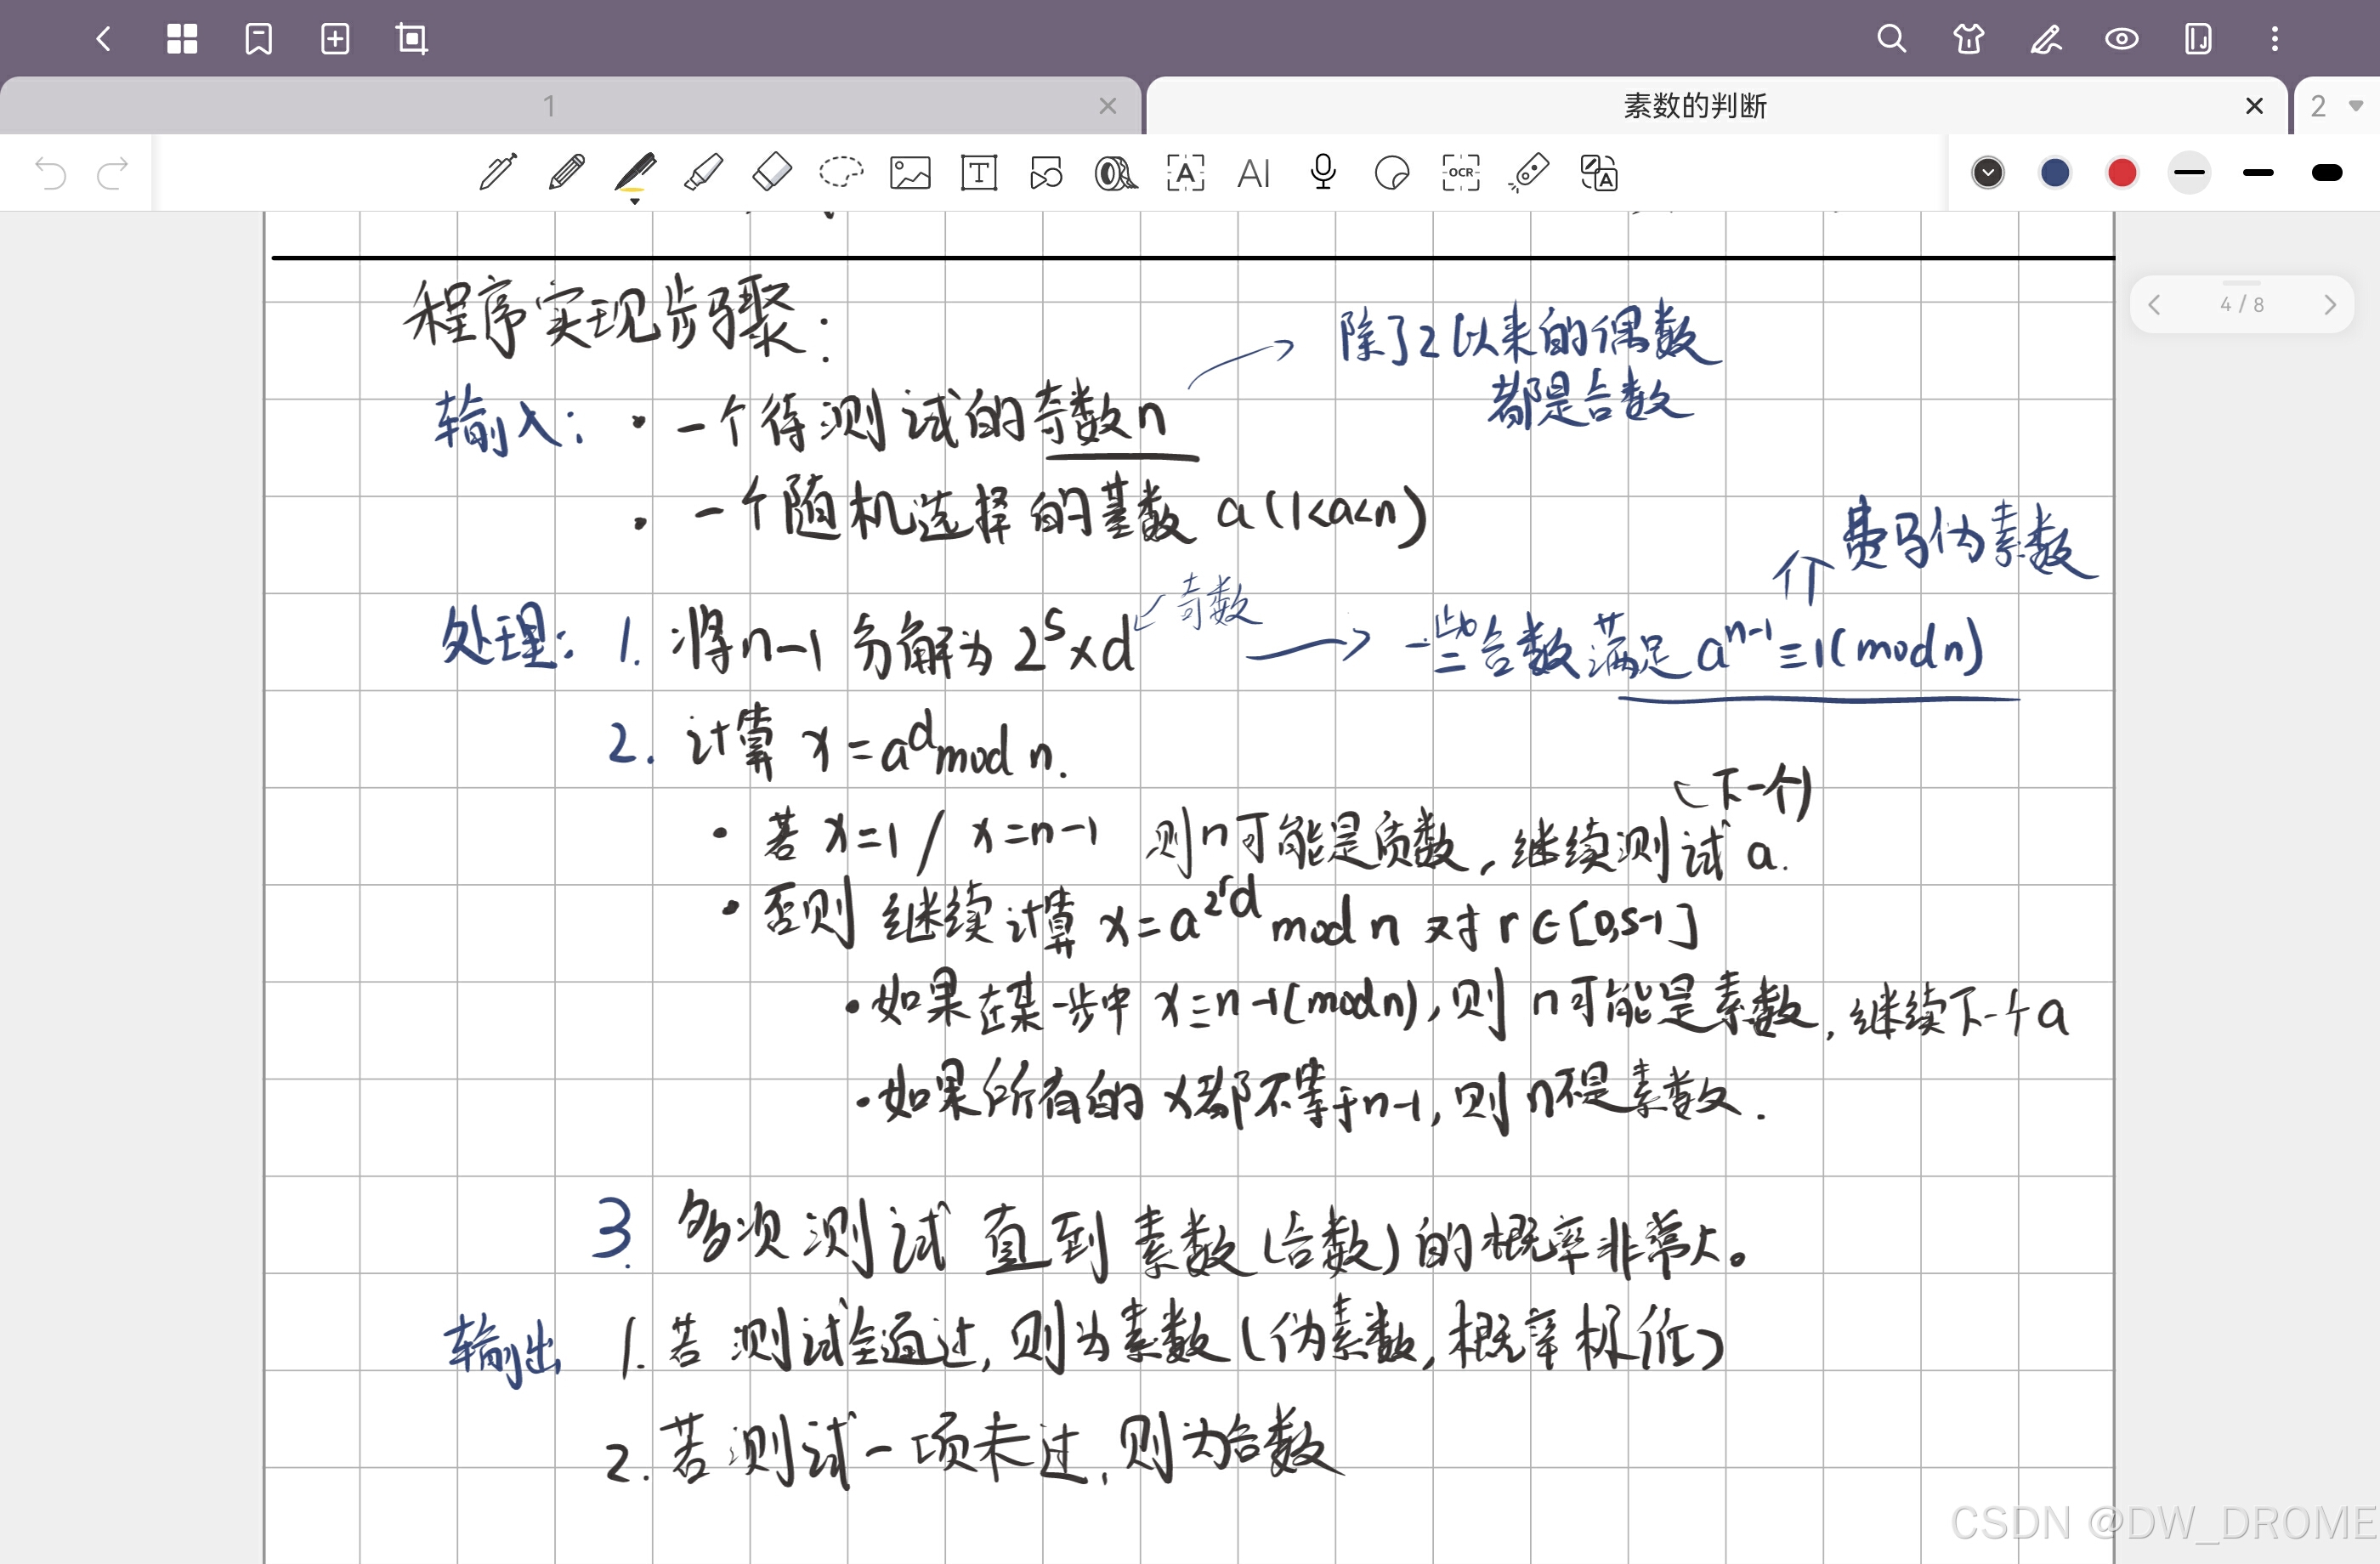 1
素数的判断
2
T
A
AI
OCR
A
4 / 8
程序实现步骤：
除了2以来的偶数
都是合数
输入：• 一个待测试的奇数n
• 一个随机选择的基数 a(1<a<n)
费马伪素数
处理：1. 将n-1 分解为 2^s×d
奇数
一些合数满足 a^{n-1}≡1(mod n)
2. 计算 x=a^d mod n.
(下一个)
• 若 x=1 / x=n-1 则n可能是质数，继续测试 a.
• 否则 继续计算 x=a^{2^r d} mod n 对 r∈[0,s-1]
• 如果在某一步中 x≡n-1(mod n)，则 n可能是素数，继续下一个a
• 如果所有的 x都不等于n-1，则 n不是素数.
3. 多次测试 直到素数(合数)的概率非常大。
输出 1. 若测试全通过，则为素数(伪素数，概率极低)
2. 若测试一项未过，则为合数
CSDN @DW_DROME